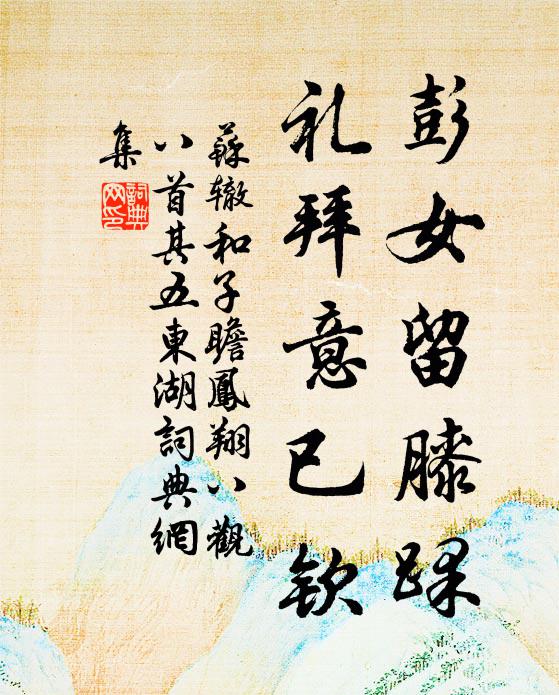 彭女留膝踝
礼拜意已欽
蘇辙和子瞻鳳翔八觀
八首其五東湖詞典網
集
詞典
网印